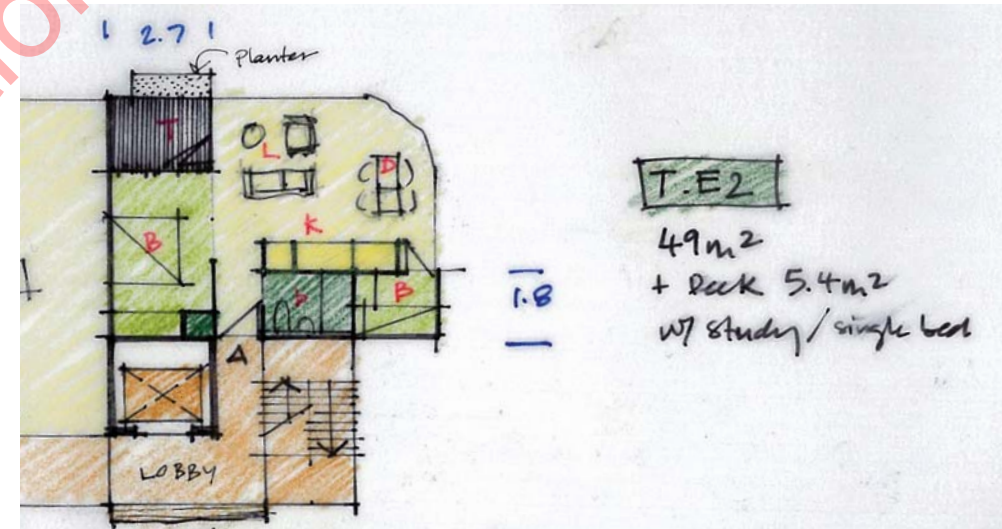 2.7
Planter
T
L
D
K
B
b
B
1.8
A
LOBBY
T.E2
49m2
+ Deck 5.4m2
w/ study/single bed